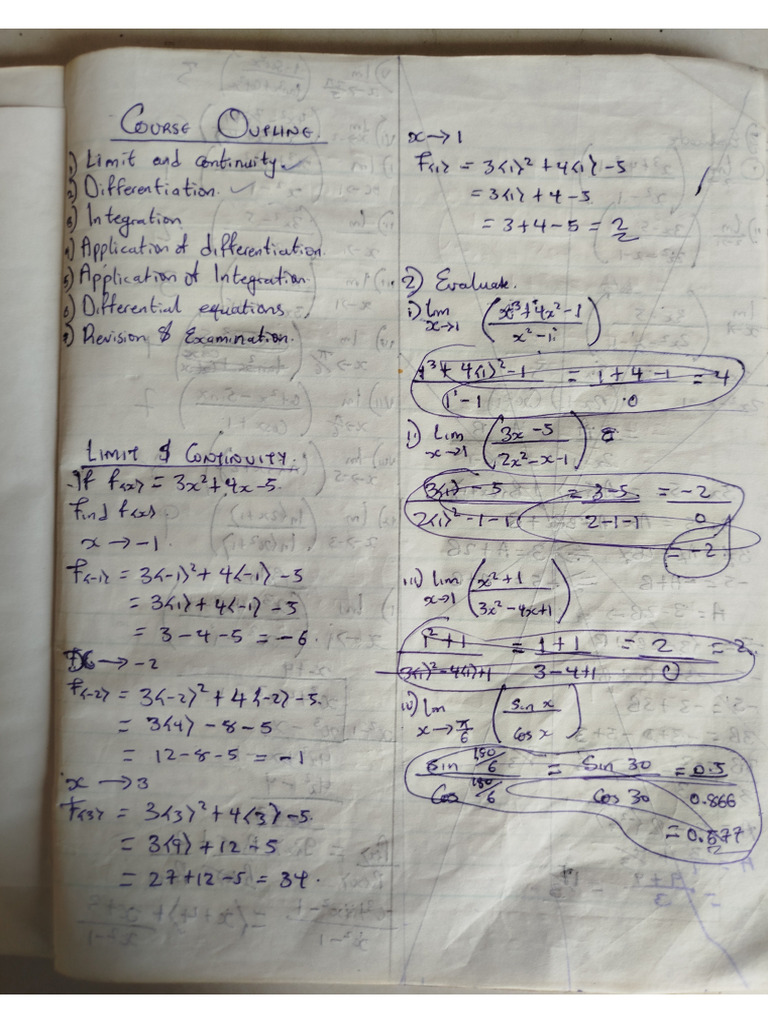 COURSE OUPLINE.
1) Limit and continuity. ✓
2) Differentiation. ✓
3) Integration
4) Application of differentiation.
5) Application of Integration.
6) Differential equations
7) Revision & Examination.
LIMIT & CONTINUITY.
If f(x) = 3x² + 4x - 5.
Find f(x)
x → -1.
F(-1) = 3(-1)² + 4(-1) - 5
= 3(1) + 4(-1) - 5
= 3 - 4 - 5 = -6.
x → -2
F(-2) = 3(-2)² + 4(-2) - 5.
= 3(4) - 8 - 5
= 12 - 8 - 5 = -1
x → 3
F(3) = 3(3)² + 4(3) - 5.
= 3(9) + 12 + 5
= 27 + 12 - 5 = 34.
x → 1
F(1) = 3(1)² + 4(1) - 5
= 3(1) + 4 - 5
= 3 + 4 - 5 = 2
2) Evaluate.
i) lim x→1 (x³ + 4x² - 1 / x² - 1)
1³ + 4(1)² - 1 / 1¹ - 1 = 1 + 4 - 1 / 0 = 4
ii) Lim x→1 (3x - 5 / 2x² - x - 1)
3(1) - 5 / 2(1)² - 1 - 1 = 3 - 5 / 2 - 1 - 1 = -2 / 0
= -2.
iii) lim x→1 (x² + 1 / 3x² - 4x + 1)
1² + 1 / 3(1)² - 4(1) + 1 = 1 + 1 / 3 - 4 + 1 = 2 / 0 = 2
iv) lim x→π/6 (sin x / cos x)
sin 180/6 / Cos 180/6 = Sin 30 / Cos 30 = 0.5 / 0.866
= 0.577